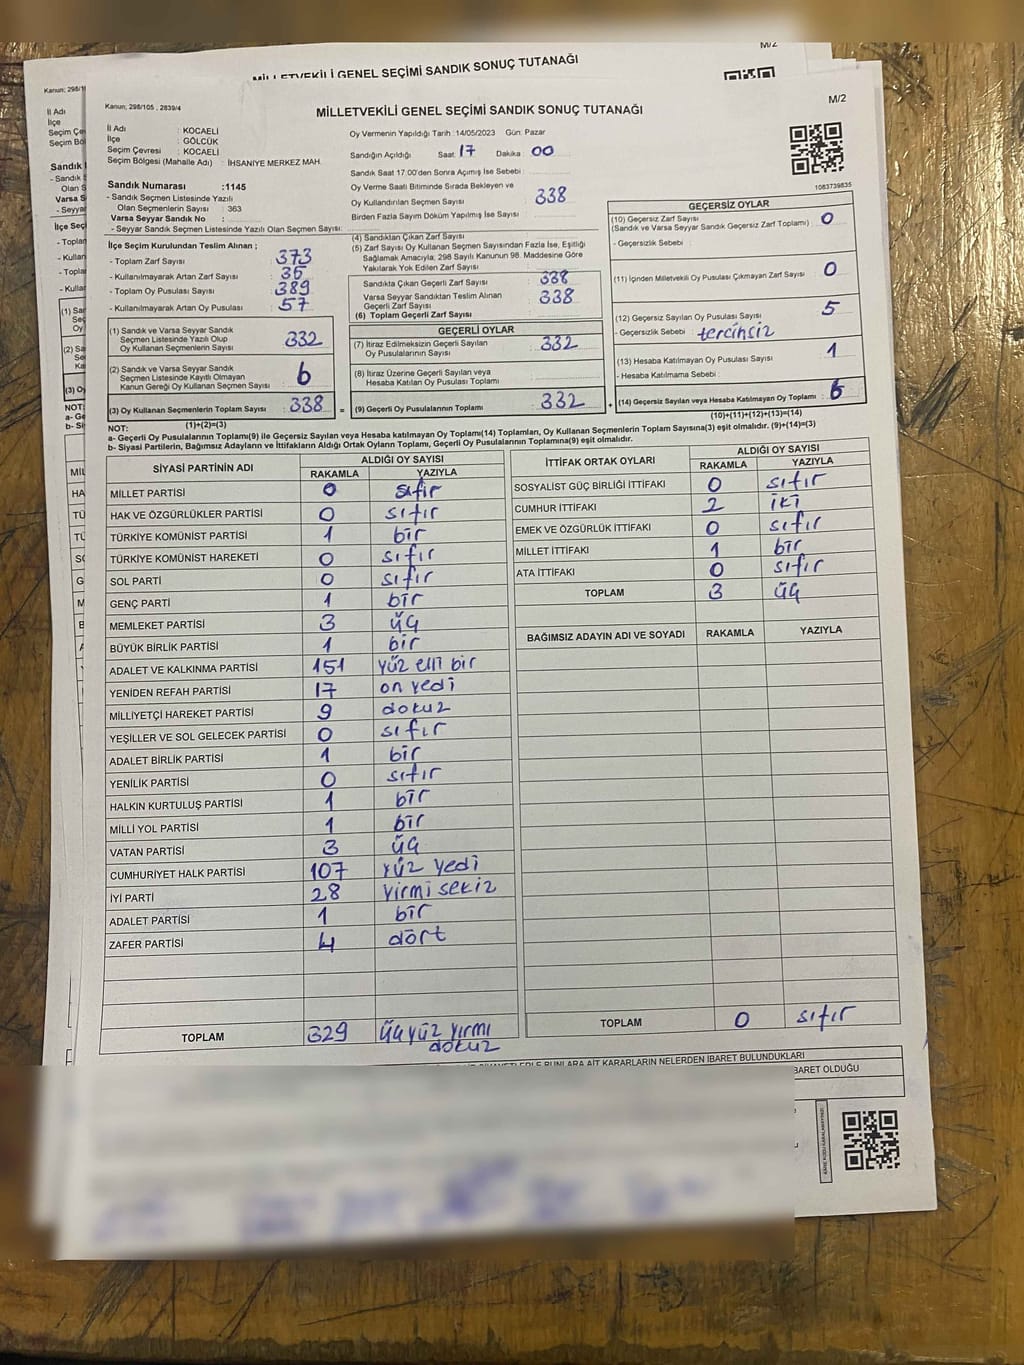 M/2
MİLLETVEKİLİ GENEL SEÇİMİ SANDIK SONUÇ TUTANAĞI
Kanun; 298/105 , 2839/4
MİLLETVEKİLİ GENEL SEÇİMİ SANDIK SONUÇ TUTANAĞI
M/2
İl Adı : KOCAELİ
İlçe : GÖLCÜK
Seçim Çevresi : KOCAELİ
Seçim Bölgesi (Mahalle Adı) : İHSANİYE MERKEZ MAH.
Sandık Numarası :1145
- Sandık Seçmen Listesinde Yazılı
Olan Seçmenlerin Sayısı : 363
Varsa Seyyar Sandık No :
- Seyyar Sandık Seçmen Listesinde Yazılı Olan Seçmen Sayısı:
Oy Vermenin Yapıldığı Tarih :14/05/2023 Gün: Pazar
Sandığın Açıldığı Saat: 17 Dakika: 00
Sandık Saat 17:00'den Sonra Açımış İse Sebebi :
Oy Verme Saati Bitiminde Sırada Bekleyen ve
Oy Kullandırılan Seçmen Sayısı 338
Birden Fazla Sayım Döküm Yapılmış İse Sayısı
1083739835
İlçe Seçim Kurulundan Teslim Alınan ;
- Toplam Zarf Sayısı 373
- Kullanılmayarak Artan Zarf Sayısı 35
- Toplam Oy Pusulası Sayısı 389
- Kullanılmayarak Artan Oy Pusulası 57
(1) Sandık ve Varsa Seyyar Sandık
Seçmen Listesinde Yazılı Olup
Oy Kullanan Seçmenlerin Sayısı 332
(2) Sandık ve Varsa Seyyar Sandık
Seçmen Listesinde Kayıtlı Olmayan
Kanun Gereği Oy Kullanan Seçmen Sayısı 6
(3) Oy Kullanan Seçmenlerin Toplam Sayısı 338
(1)+(2)=(3)
(4) Sandıktan Çıkan Zarf Sayısı
(5) Zarf Sayısı Oy Kullanan Seçmen Sayısından Fazla İse, Eşitliği
Sağlamak Amacıyla; 298 Sayılı Kanunun 98. Maddesine Göre
Yakılarak Yok Edilen Zarf Sayısı
Sandıkta Çıkan Geçerli Zarf Sayısı 338
Varsa Seyyar Sandıktan Teslim Alınan
Geçerli Zarf Sayısı 338
(6) Toplam Geçerli Zarf Sayısı
GEÇERLİ OYLAR
(7) İtiraz Edilmeksizin Geçerli Sayılan
Oy Pusulalarının Sayısı 332
(8) İtiraz Üzerine Geçerli Sayılan veya
Hesaba Katılan Oy Pusulası Toplamı
= (9) Geçerli Oy Pusulalarının Toplamı 332
GEÇERSİZ OYLAR
(10) Geçersiz Zarf Sayısı 0
(Sandık ve Varsa Seyyar Sandık Geçersiz Zarf Toplamı)
- Geçersizlik Sebebi :
(11) İçinden Milletvekili Oy Pusulası Çıkmayan Zarf Sayısı 0
(12) Geçersiz Sayılan Oy Pusulası Sayısı 5
- Geçersizlik Sebebi : tercihsiz
(13) Hesaba Katılmayan Oy Pusulası Sayısı 1
- Hesaba Katılmama Sebebi :
+ (14) Geçersiz Sayılan veya Hesaba Katılmayan Oy Toplamı 6
(10)+(11)+(12)+(13)=(14)
NOT:
a- Geçerli Oy Pusulalarının Toplamı(9) ile Geçersiz Sayılan veya Hesaba katılmayan Oy Toplamı(14) Toplamları, Oy Kullanan Seçmenlerin Toplam Sayısına(3) eşit olmalıdır. (9)+(14)=(3)
b- Siyasi Partilerin, Bağımsız Adayların ve İttifakların Aldığı Ortak Oyların Toplamı, Geçerli Oy Pusulalarının Toplamına(9) eşit olmalıdır.
SİYASİ PARTİNİN ADI ALDIĞI OY SAYISI
RAKAMLA YAZIYLA
MİLLET PARTİSİ 0 sıfır
HAK VE ÖZGÜRLÜKLER PARTİSİ 0 sıfır
TÜRKİYE KOMÜNİST PARTİSİ 1 bir
TÜRKİYE KOMÜNİST HAREKETİ 0 sıfır
SOL PARTİ 0 sıfır
GENÇ PARTİ 1 bir
MEMLEKET PARTİSİ 3 üç
BÜYÜK BİRLİK PARTİSİ 1 bir
ADALET VE KALKINMA PARTİSİ 151 yüz elli bir
YENİDEN REFAH PARTİSİ 17 on yedi
MİLLİYETÇİ HAREKET PARTİSİ 9 dokuz
YEŞİLLER VE SOL GELECEK PARTİSİ 0 sıfır
ADALET BİRLİK PARTİSİ 1 bir
YENİLİK PARTİSİ 0 sıfır
HALKIN KURTULUŞ PARTİSİ 1 bir
MİLLİ YOL PARTİSİ 1 bir
VATAN PARTİSİ 3 üç
CUMHURİYET HALK PARTİSİ 107 yüz yedi
İYİ PARTİ 28 yirmi sekiz
ADALET PARTİSİ 1 bir
ZAFER PARTİSİ 4 dört
TOPLAM 329 üçyüz yirmi
dokuz
İTTİFAK ORTAK OYLARI ALDIĞI OY SAYISI
RAKAMLA YAZIYLA
SOSYALİST GÜÇ BİRLİĞİ İTTİFAKI 0 sıfır
CUMHUR İTTİFAKI 2 iki
EMEK VE ÖZGÜRLÜK İTTİFAKI 0 sıfır
MİLLET İTTİFAKI 1 bir
ATA İTTİFAKI 0 sıfır
TOPLAM 3 üç
BAĞIMSIZ ADAYIN ADI VE SOYADI RAKAMLA YAZIYLA
TOPLAM 0 sıfır
BUNLARA AİT KARARLARIN NELERDEN İBARET BULUNDUKLARI
BARET OLDUĞU